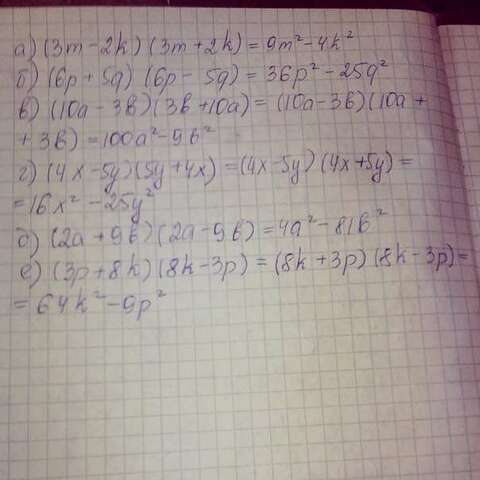 а) (3m - 2k) (3m + 2k) = 9m² - 4k²
б) (6p + 5q) (6p - 5q) = 36p² - 25q²
в) (10a - 3b) (3b + 10a) = (10a - 3b) (10a +
+ 3b) = 100a² - 9b²
г) (4x - 5y) (5y + 4x) = (4x - 5y) (4x + 5y) =
= 16x² - 25y²
д) (2a + 9b) (2a - 9b) = 4a² - 81b²
е) (3p + 8k) (8k - 3p) = (8k + 3p) (8k - 3p) =
= 64k² - 9p²